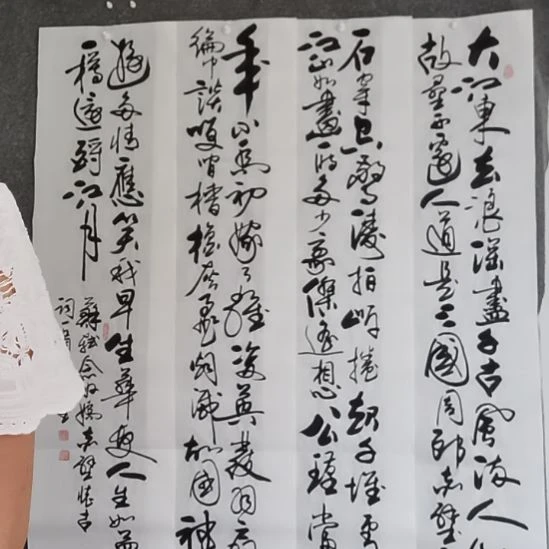 大江東去浪淘盡千古風流人
故壘西邊人道是三國周郎赤壁
石穿空驚濤拍岸捲起千堆
江山如畫一時多少豪傑遙想公瑾當
年小喬初嫁了雄姿英發羽扇
綸巾談笑間檣櫓灰飛烟滅故國神
遊多情應笑我早生華髮人生如夢
一樽還酹江月
蘇軾念奴嬌赤壁懷古
詞一首